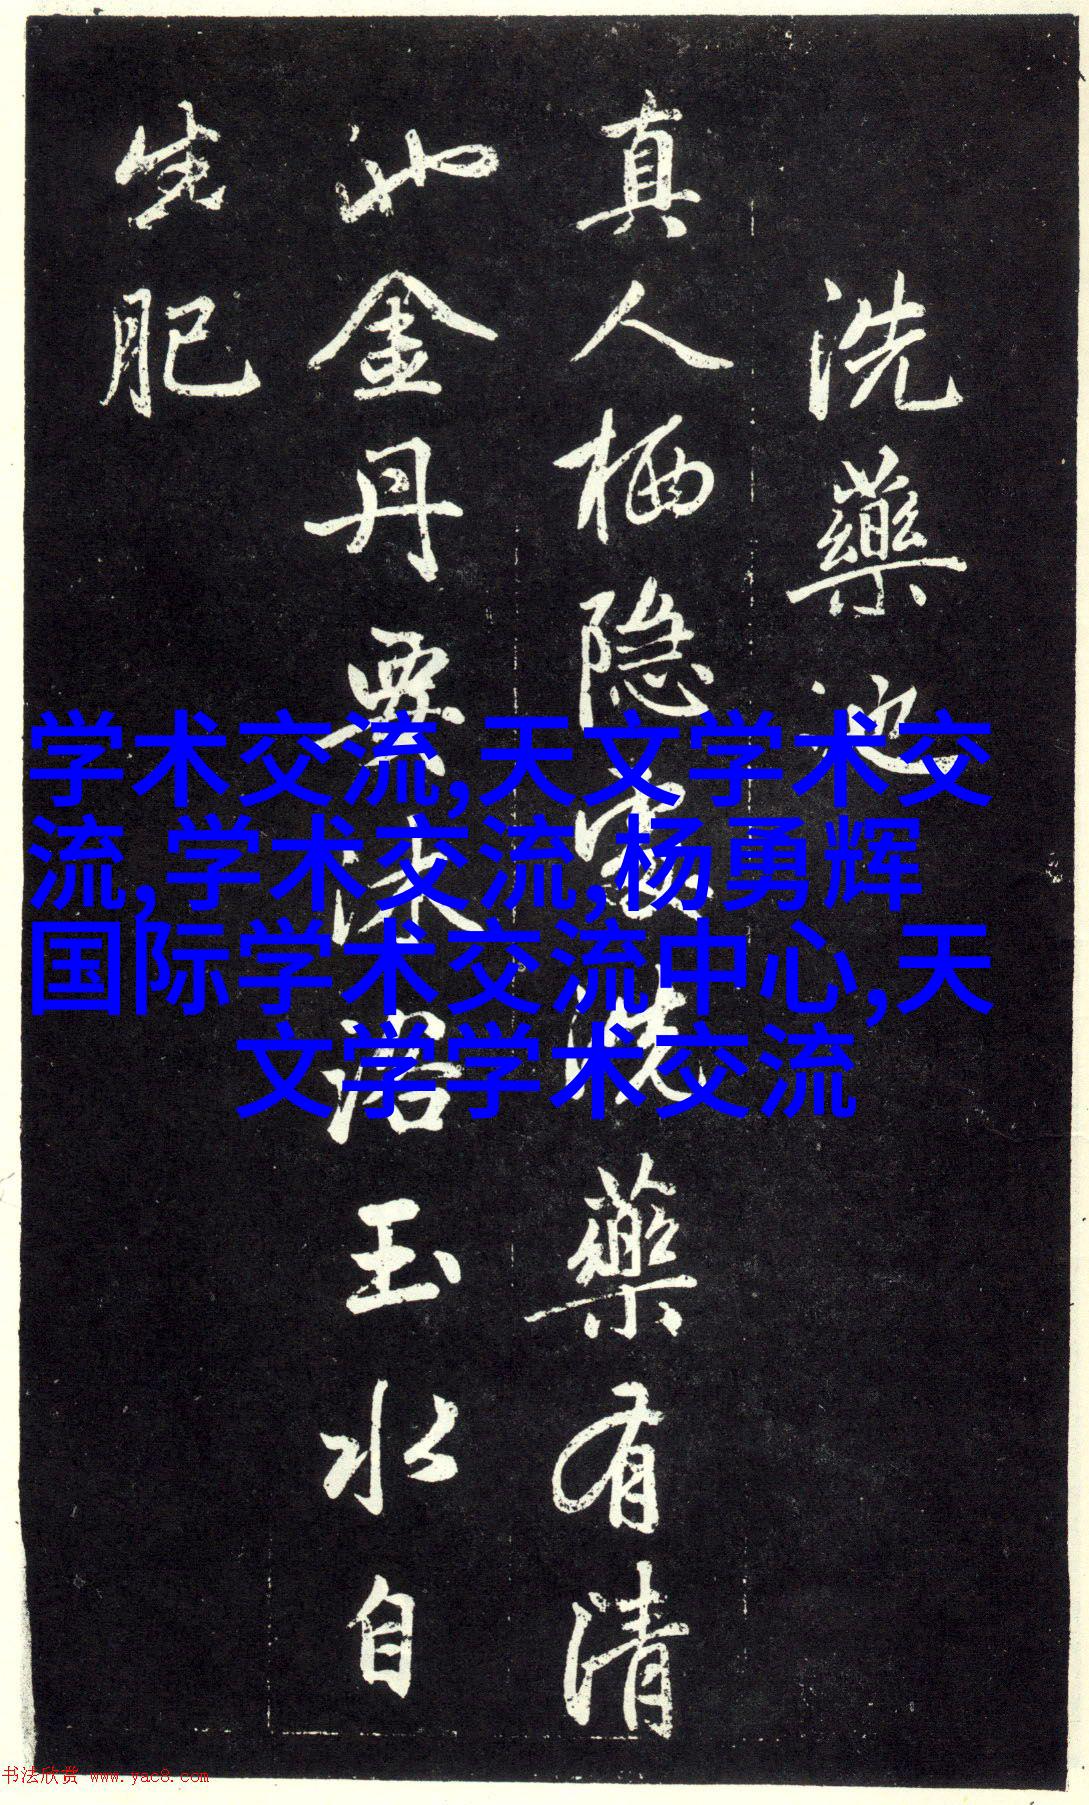 洗藥池
真人栖隐洗藥有清
池金丹要沐浴玉水自
生肥
学术交流,天文学术交
流,学术交流,杨勇辉
国际学术交流中心,天
文学学术交流
书法欣赏 www.yac8.com